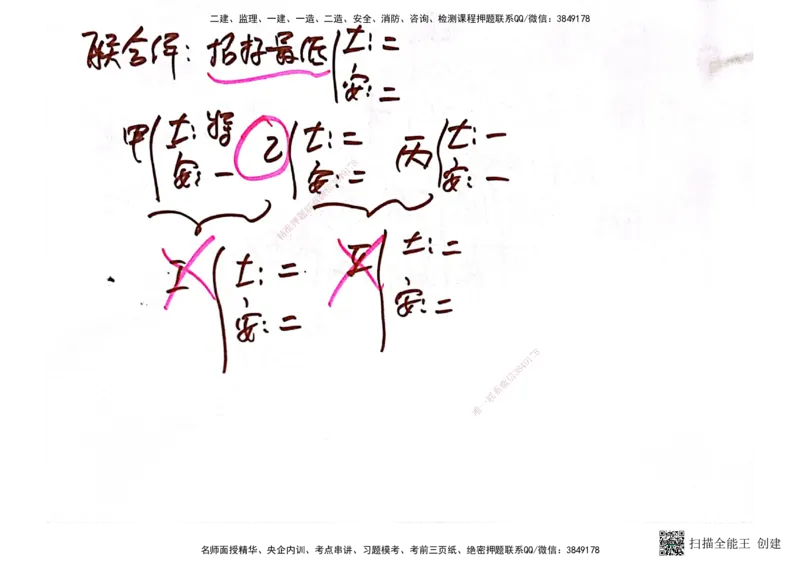 二建、监理、一建、一造、二造、安全、消防、咨询、检测课程押题联系QQ/微信：3849178
联合体：招好最低 土：二
安：二
甲 土：特 乙 土：二 丙 土：一
安：一 安：二 安：一
I 土：二 II 土：二
安：二 安：二
唯一联系微信3849178
名师面授精华、央企内训、考点串讲、习题模考、考前三页纸、绝密押题联系QQ/微信：3849178
扫描全能王 创建